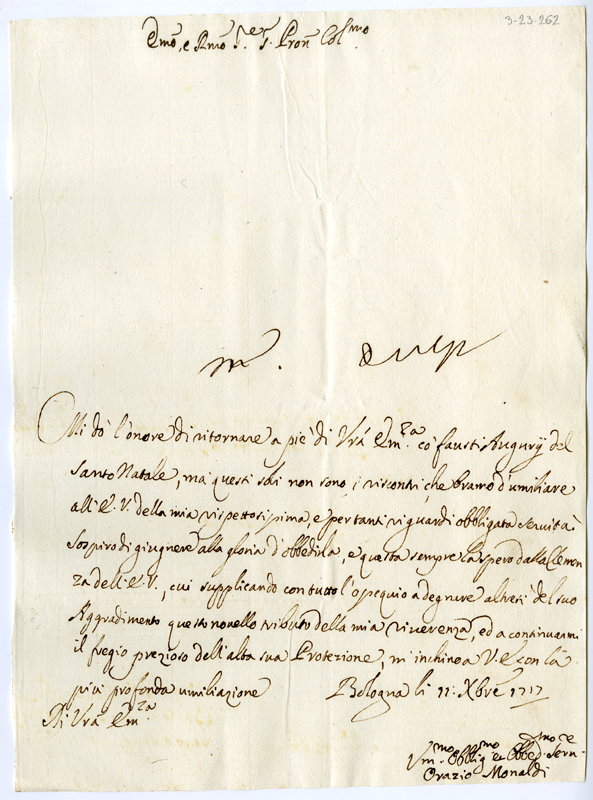 3-23-262
Emo, e Rmo Sre, e Pron Colmo
Mi dò l'onore di ritornare a piè di Vrã Emza cò fausti Augurij del
Santo Natale, ma questi soli non sono i riscontri, che bramo d'umiliare
all'E. V. della mia rispettosissima, e per tanti riguardi obbligata servitù
Sospiro di giugnere alla gloria d'obbedirla, e questa sempre la spero dalla Clemen
za dell'E. V., cui supplicando con tutto l'ossequio a degnare altresì del suo
Aggradimento questo novello tributo della mia riverenza, ed a continuarmi
il fregio prezioso dell'alta sua Protezione, m'inchino a V. E. con la
più profonda umiliazione Bologna li 11: Xbre 1717
Di Vrã Emza
Vmmo Obbligmo et Obbed. Serv.
Orazio Monaldi